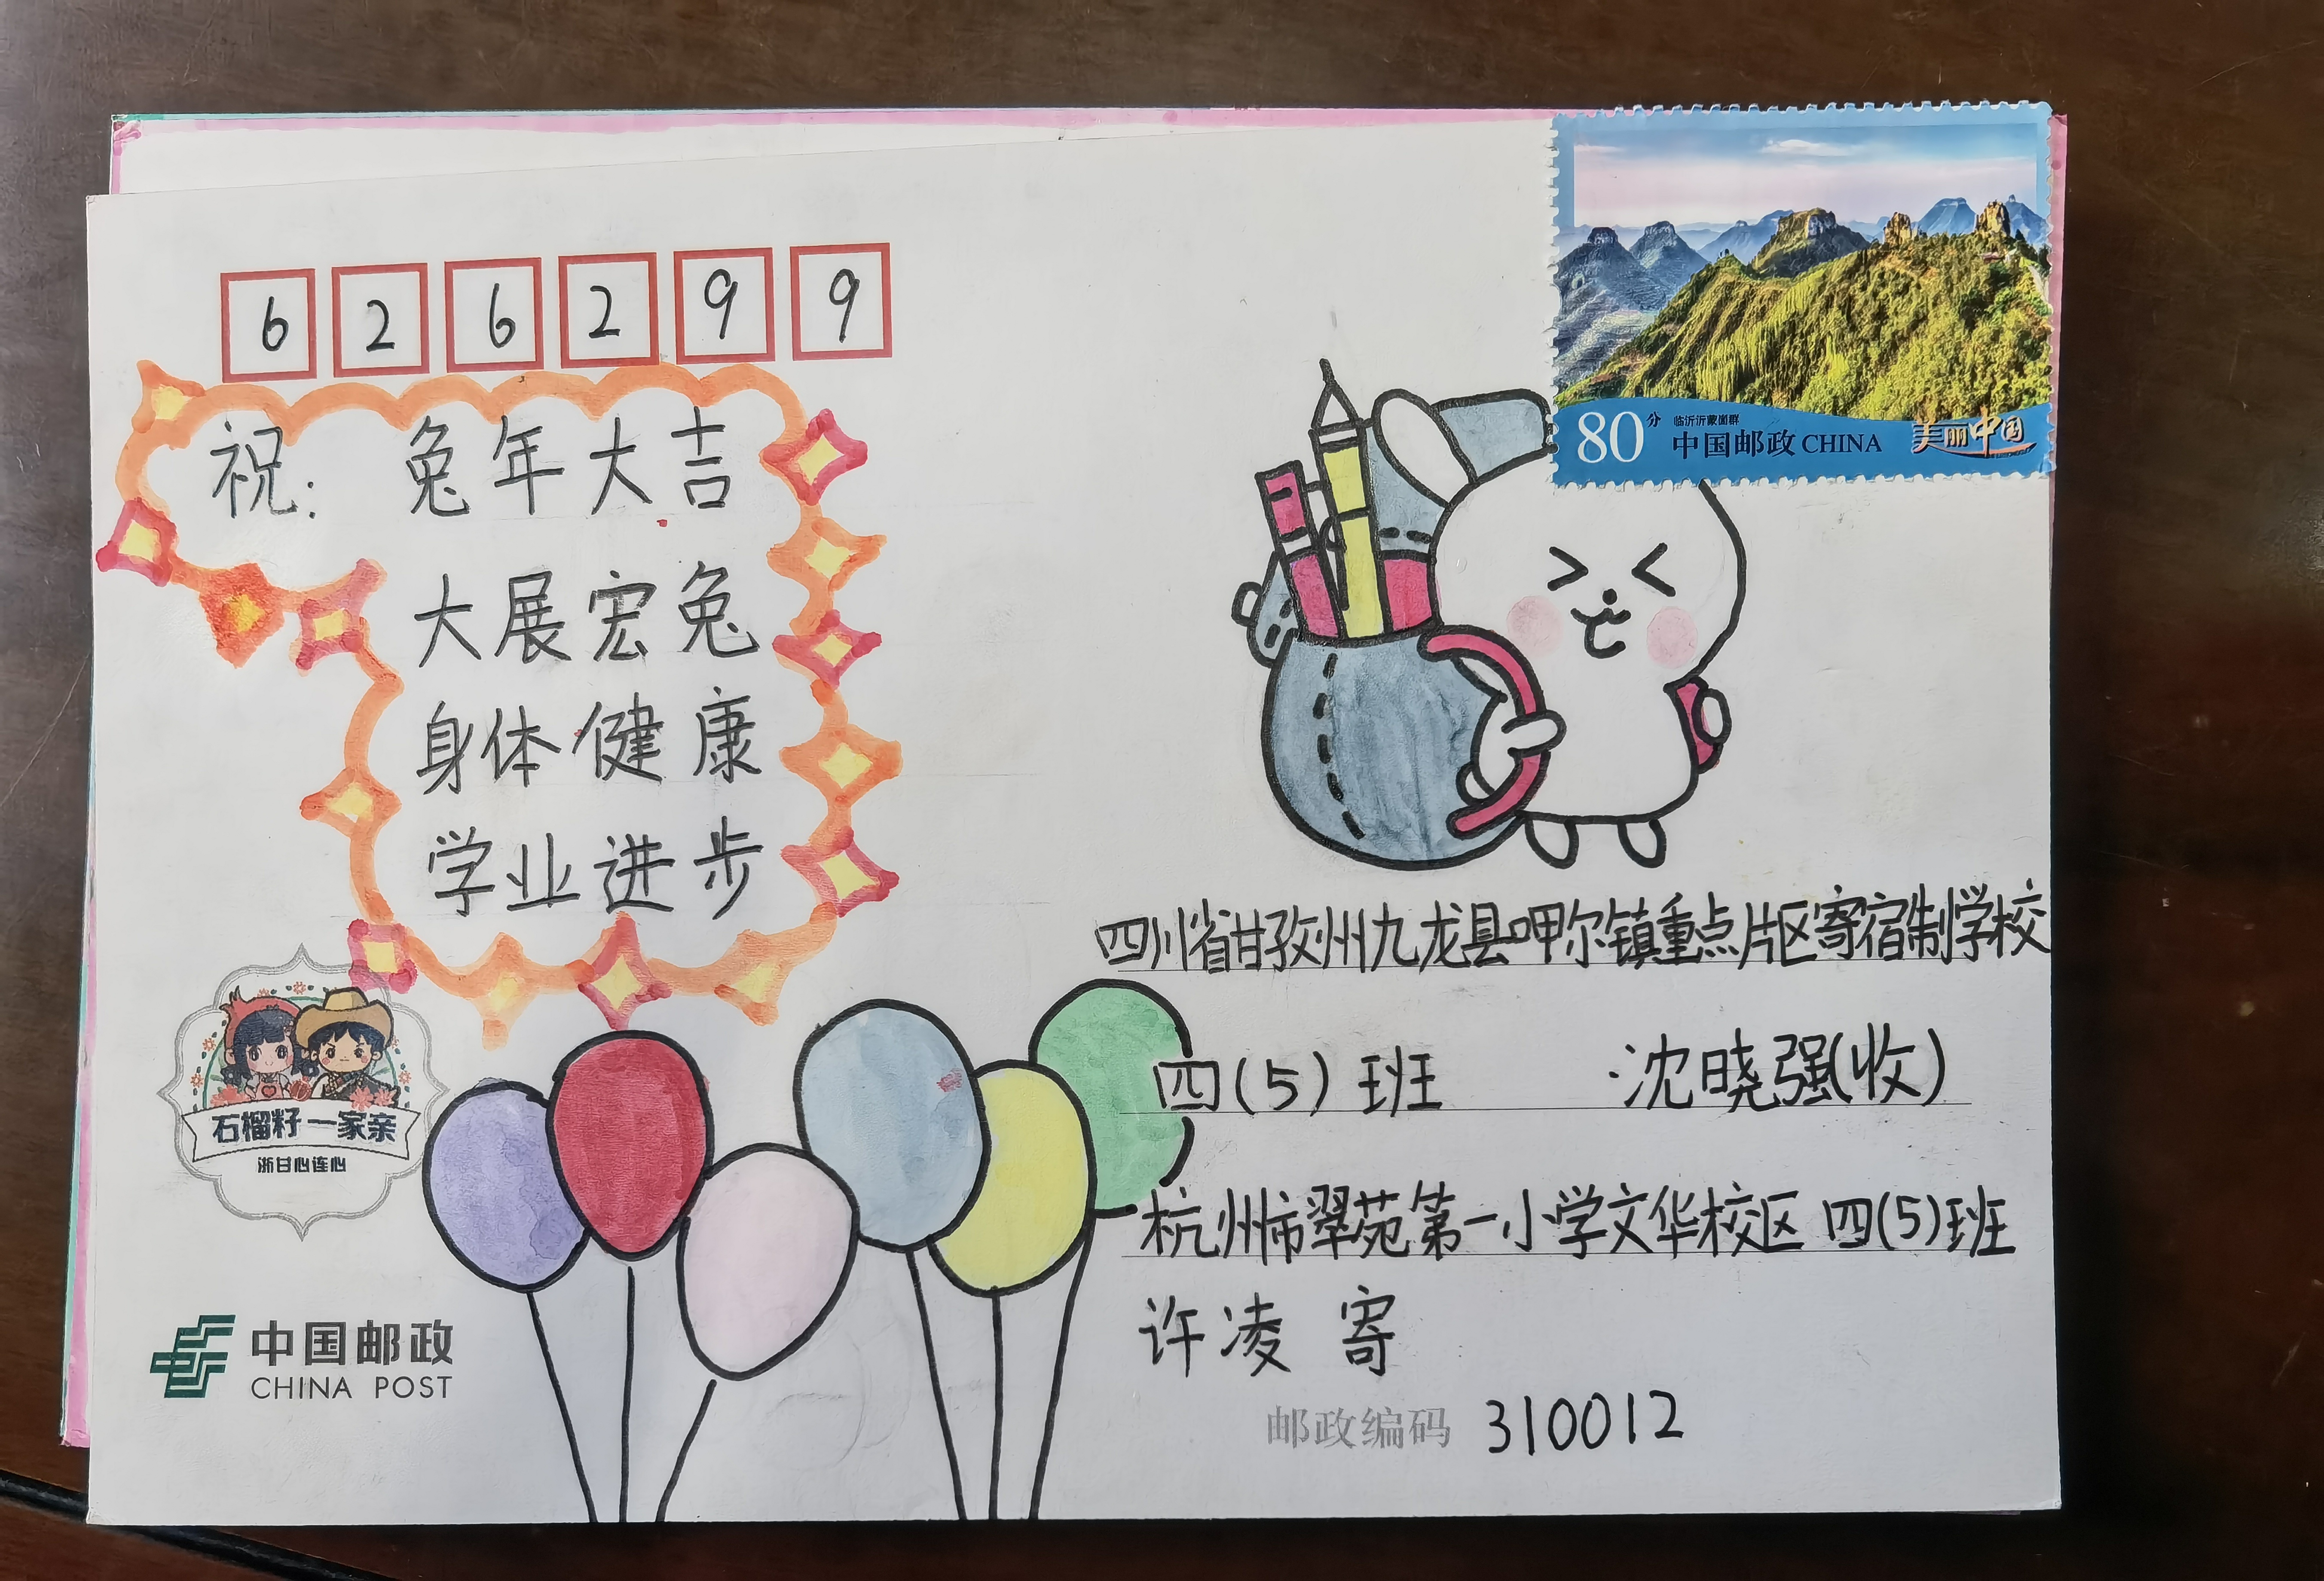 626299
祝: 兔年大吉
大展宏兔
身体健康
学业进步
80分
临沂沂蒙崮群
中国邮政 CHINA
美丽中国
四川省甘孜州九龙县呷尔镇重点片区寄宿制学校
四(5)班 沈晓强(收)
杭州市翠苑第一小学文华校区 四(5)班
许凌 寄
邮政编码 310012
石榴籽一家亲
浙甘心连心
中国邮政
CHINA POST